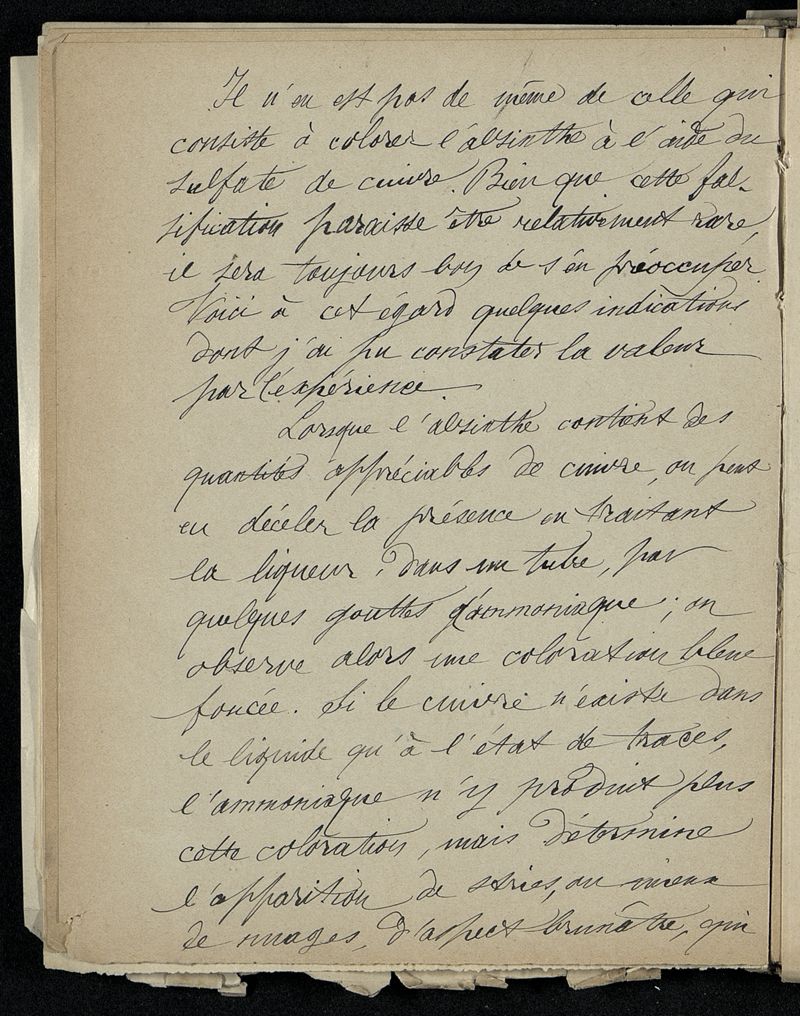 Il n'en est pas de même de celle qui
consiste à colorer l'absinthe à l'aide du
sulfate de cuivre. Bien que cette fal-
sification paraisse être relativement rare,
il sera toujours bon de s'en préoccuper.
Voici à cet égard quelques indications
dont j'ai pu constater la valeur
par l'expérience.
Lorsque l'absinthe contient des
quantités appréciables de cuivre, on peut
en déceler la présence en traitant
la liqueur, dans un tube, par
quelques gouttes d'ammoniaque; on
observe alors une coloration bleue
foncée. Si le cuivre n'existe dans
le liquide qu'à l'état de traces,
l'ammoniaque n'y produit plus
cette coloration, mais détermine
l'apparition de stries, ou mieux
de nuages, d'aspect brunâtre, qui